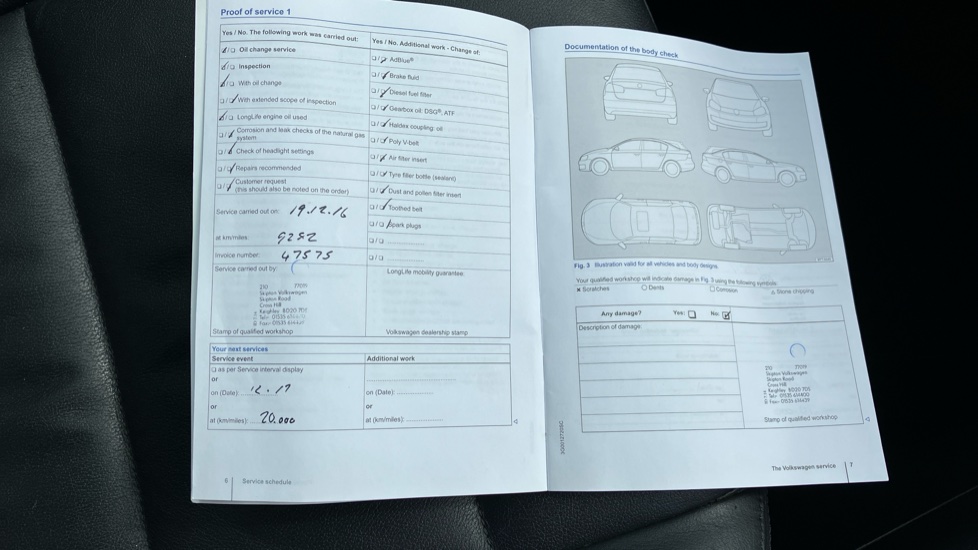 Proof of service 1
Yes / No. The following work was carried out:
Oil change service
Inspection
With oil change
With extended scope of inspection
LongLife engine oil used
Corrosion and leak checks of the natural gas
system
Check of headlight settings
Repairs recommended
Customer request
(this should also be noted on the order)
Service carried out on: 19.12.16
at km/miles: 9252
Invoice number: 47575
Service carried out by:
Skipton Volkswagen
Skipton Road
Cross Hill
Keighley
Stamp of qualified workshop
Yes / No. Additional work - Change of:
AdBlue®
Brake fluid
Diesel fuel filter
Gearbox oil: DSG®, ATF
Haldex coupling: oil
Poly V-belt
Air filter insert
Tyre filler bottle (sealant)
Dust and pollen filter insert
Toothed belt
Spark plugs
LongLife mobility guarantee:
Volkswagen dealership stamp
Your next services
Service event
as per Service interval display
or
on (Date): 12.17
or
at (km/miles): 20.000
Additional work
on (Date):
or
at (km/miles):
6 Service schedule
Documentation of the body check
Fig. 3 Illustration valid for all vehicles and body designs.
Your qualified workshop will indicate damage in Fig. 3 using the following symbols:
Scratches Dents Corrosion Stone chipping
Any damage? Yes: No:
Description of damage:
Skipton Volkswagen
Skipton Road
Cross Hill
Keighley
Stamp of qualified workshop
The Volkswagen service 7